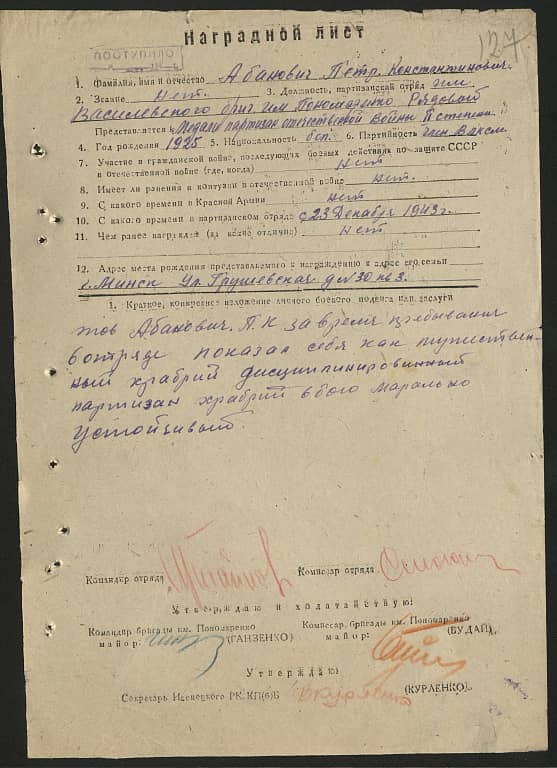 127
Наградной лист
ПОСТУПИЛО
1. Фамилия, имя и отчество Абанович Петр Константинович.
2. Звание Нет. 3. Должность, партизанский отряд им
Василевского бриг. им Пономаренко Рядовой
Представляется к Медали партизан отечественной войны II степени
4. Год рождения 1925 5. Национальность бел. 6. Партийность член ВЛКСМ
7. Участие в гражданской войне, последующих боевых действиях по защите СССР
и отечественной войне (где, когда) нет
8. Имеет ли ранения и контузии в отечественной войне нет.
9. С какого времени в Красной Армии нет.
10. С какого времени в партизанском отряде с 23 Декабря 1943 г.
11. Чем ранее награжден (за какие отличия) нет
12. Адрес места рождения представляемого к награждению и адрес его семьи
г. Минск Ул. Грушевская д № 30 кв 3.
1. Краткое, конкретное изложение личного боевого подвига или заслуги
тов Абанович. П. К за время пребывания
в отряде показал себя как мужествен-
ный храбрий дисциплинированный
партизан храбрий в бою Марально
устойчивый.
Командир отряда Комиссар отряда
Утверждаю и ходатайствую:
Командир бригады им. Пономаренко Комиссар, бригады им. Пономаренко
майор: (ГАНЗЕНКО) майор: (БУДАЙ).
Утверждаю:
Секретарь Ивенецкого РК. КП(б)Б Вкурленко (КУРЛЕНКО).